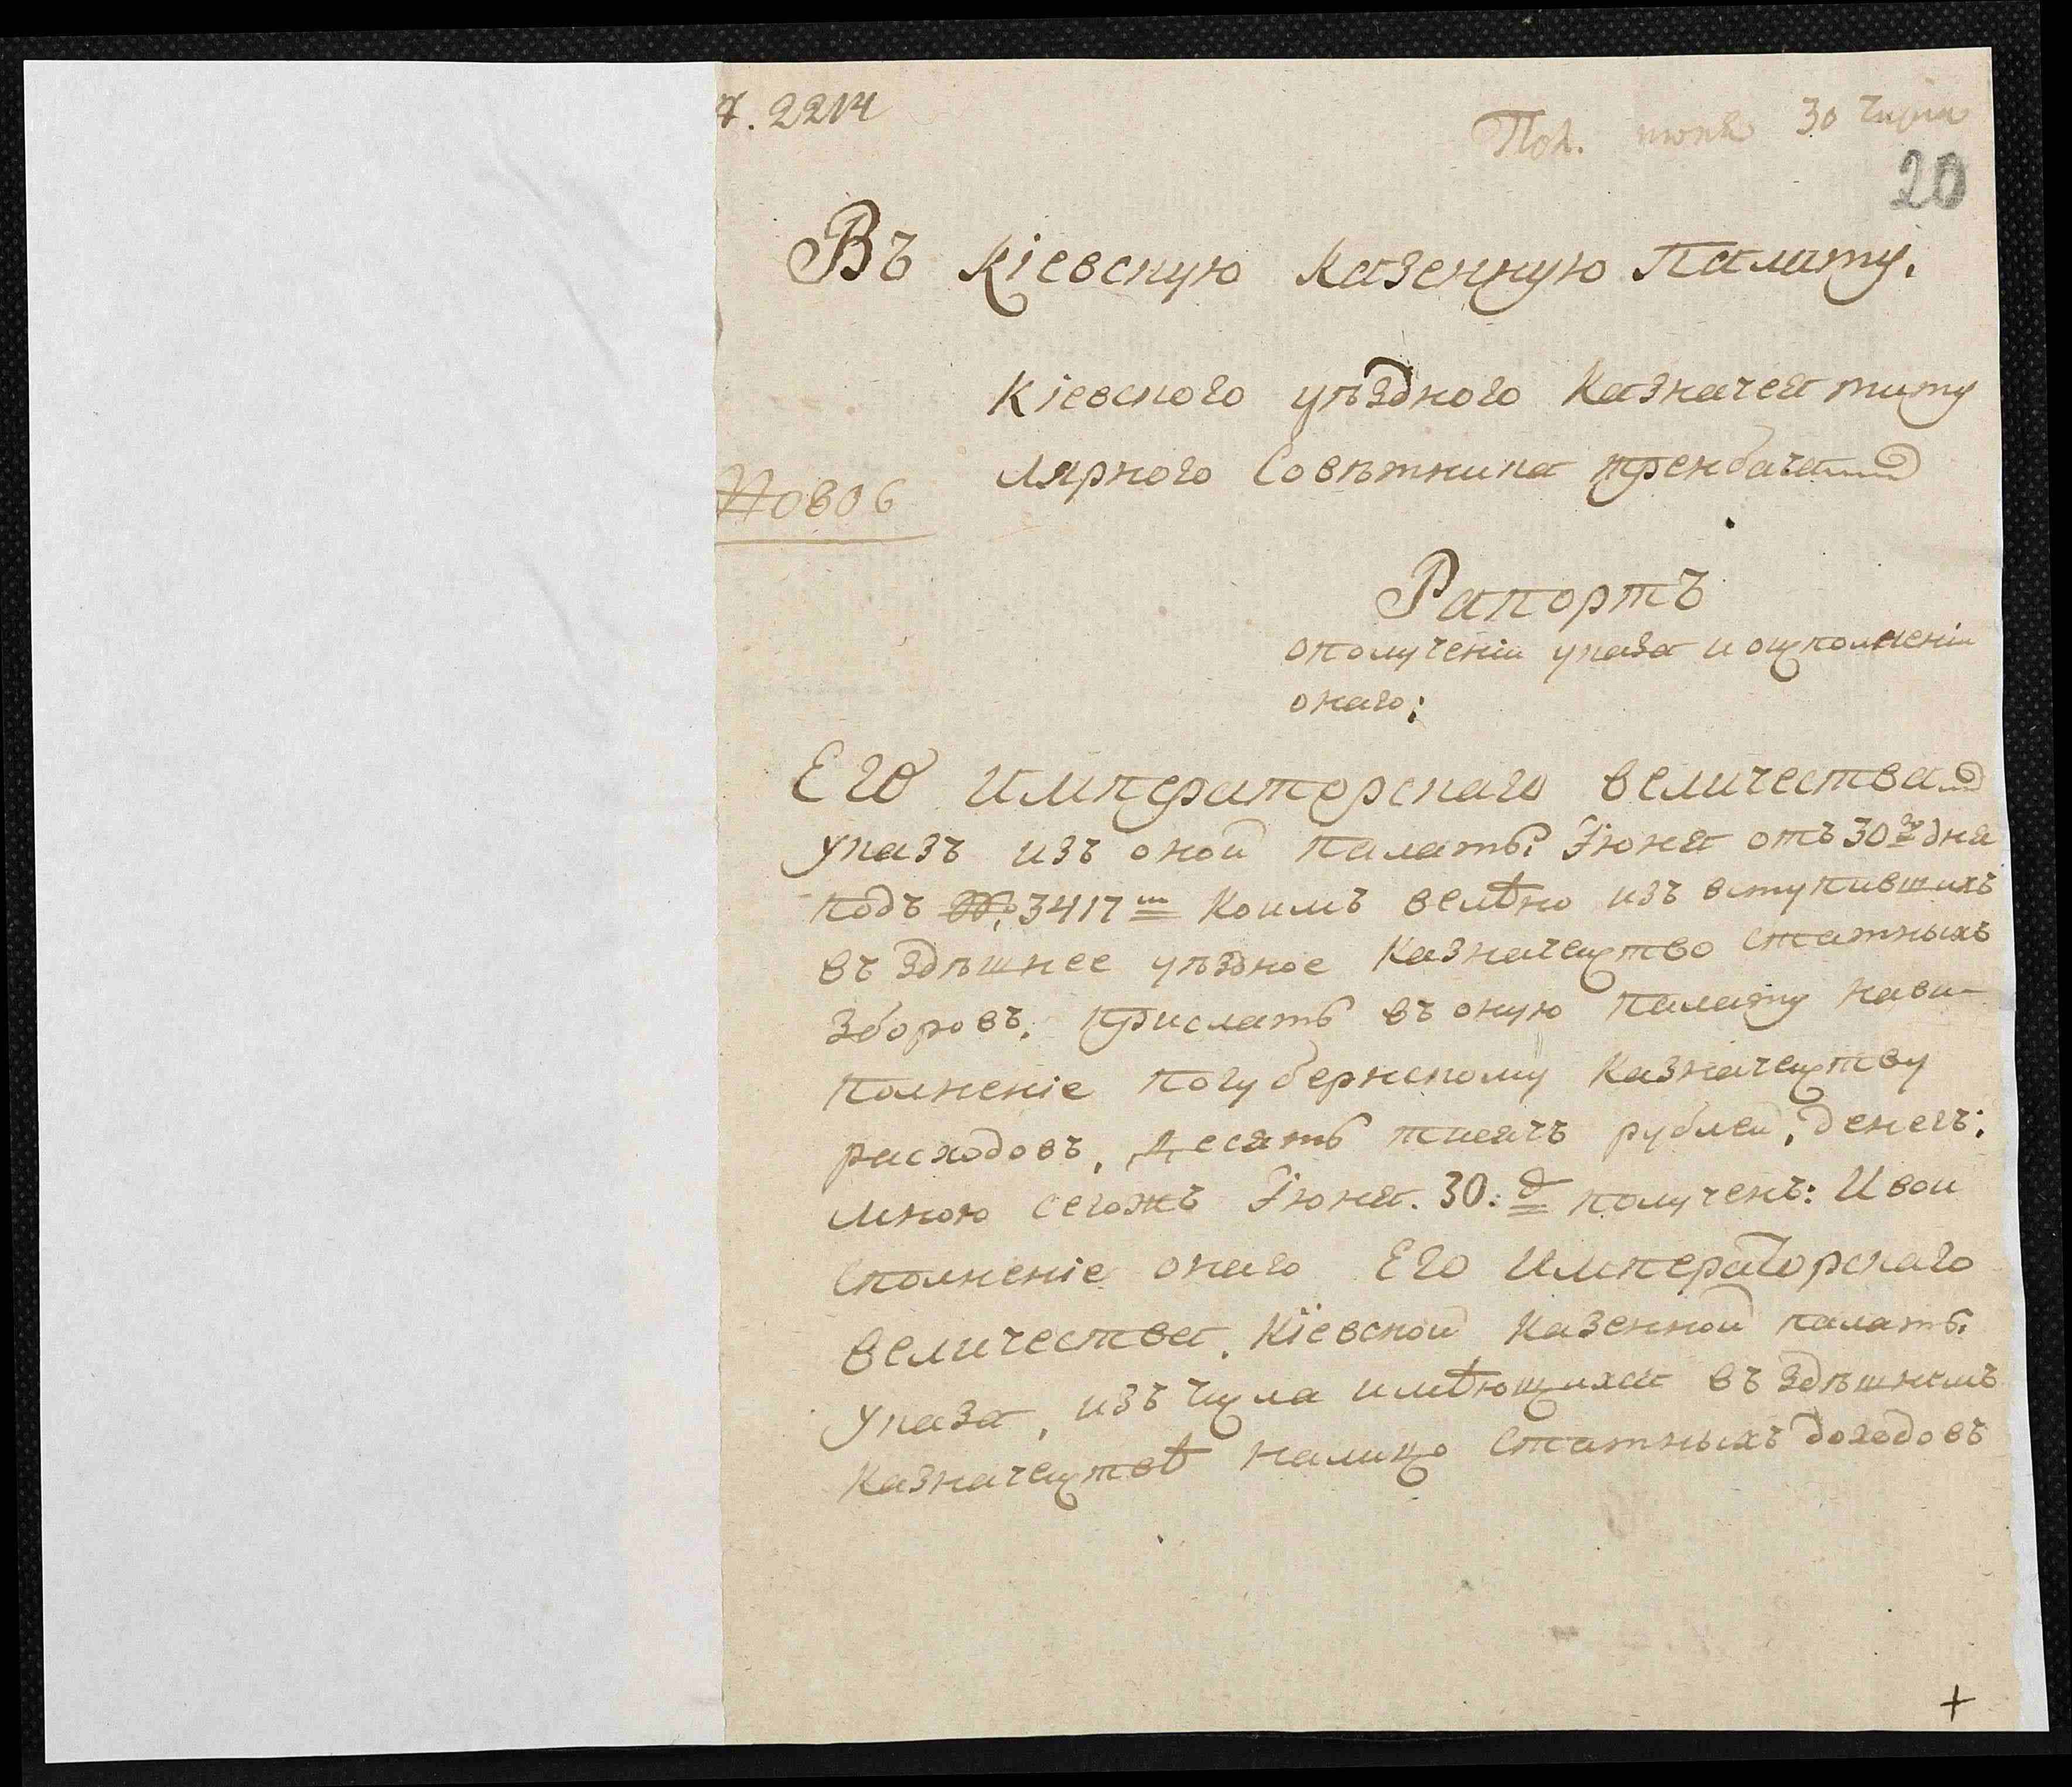 2214
Пол. июня 30 Числа
20
Въ Кіевскую Казенную Палату.
Кіевского уѣздного Казначея титу
лярного Совѣтника Требача
Новое
Рапортъ
ополученіи указа и оисполненіи
онаго:
Его Императорскаго величества
указъ изъ оной Палаты Іюня отъ 30го дня
подъ № 3417м Коимъ велѣно изъ вступившихъ
въ здѣшнее уѣздное Казначейство Статныхъ
зборовъ. прислать въ оную Палату нави-
полненіе погубернскому Казначейству
расходовъ, Десять тисячъ рублей, денегъ:
мною сегожъ Іюня. 30: д получень: И вои
сполненіе онаго Его Императорскаго
величества. Кіевской Казенной палаты
указа, изъ числа имѣющихся въ здѣшнемъ
Казначействѣ налицо Статныхъ доходовъ